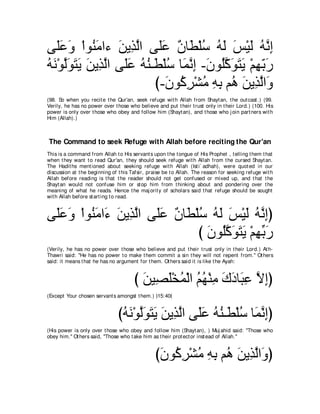 إِنَّهُ لَيْسَ لَهُ سُلْطَانٌ عَلَى الَّذِينَ ءَامَنُواْ وَعَلَى
رَبِّهِمْ يَتَوَكَّلُونَ- إِنَّمَا سُلْطَـنُهُ عَلَى الَّذِينَ يَتَوَلَّوْنَهُ
وَالَّذِينَ هُم بِهِ مُشْرِكُونَ-)
(98. So when you recite the Qur'an, seek refuge with Allah from Shaytan, the outcast.) (99.
Verily, he has no power over those who believe and put their trust only in their Lord.) (100. His
power is only over those who obey and follow him (Shaytan), and those who join partners with
Him (Allah).)
The Command to seek Refuge with Allah before reciting the Qur'an
This is a command from Allah to His servants upon the tongue of His Prophet , telling them that
when they want to read Qur'an, they should seek refuge with Allah from the cursed Shaytan.
The Hadiths mentioned about seeking refuge with Allah (Isti`adhah), were quoted in our
discussion at the beginning of this Tafsir, praise be to Allah. The reason for seeking refuge with
Allah before reading is that the reader should not get confused or mixed up, and that the
Shaytan would not confuse him or stop him from thinking about and pondering over the
meaning of what he reads. Hence the majority of scholars said that refuge should be sought
with Allah before starting to read.
(إِنَّهُ لَيْسَ لَهُ سُلْطَانٌ عَلَى الَّذِينَ ءَامَنُواْ وَعَلَى
رَبِّهِمْ يَتَوَكَّلُونَ )
(Verily, he has no power over those who believe and put their trust only in their Lord.) Ath-
Thawri said: "He has no power to make them commit a sin they will not repent from.'' Others
said: it means that he has no argument for them. Others said it is like the Ayah:
(إِلاَّ عِبَادَكَ مِنْهُمُ الْمُخْلَصِينَ )
(Except Your chosen servants amongst them.) (15:40)
(إِنَّمَا سُلْطَـنُهُ عَلَى الَّذِينَ يَتَوَلَّوْنَهُ)
(His power is only over those who obey and follow him (Shaytan), ) Mujahid said: "Those who
obey him.'' Others said, "Those who take him as their protector instead of Allah.''
(وَالَّذِينَ هُم بِهِ مُشْرِكُونَ)